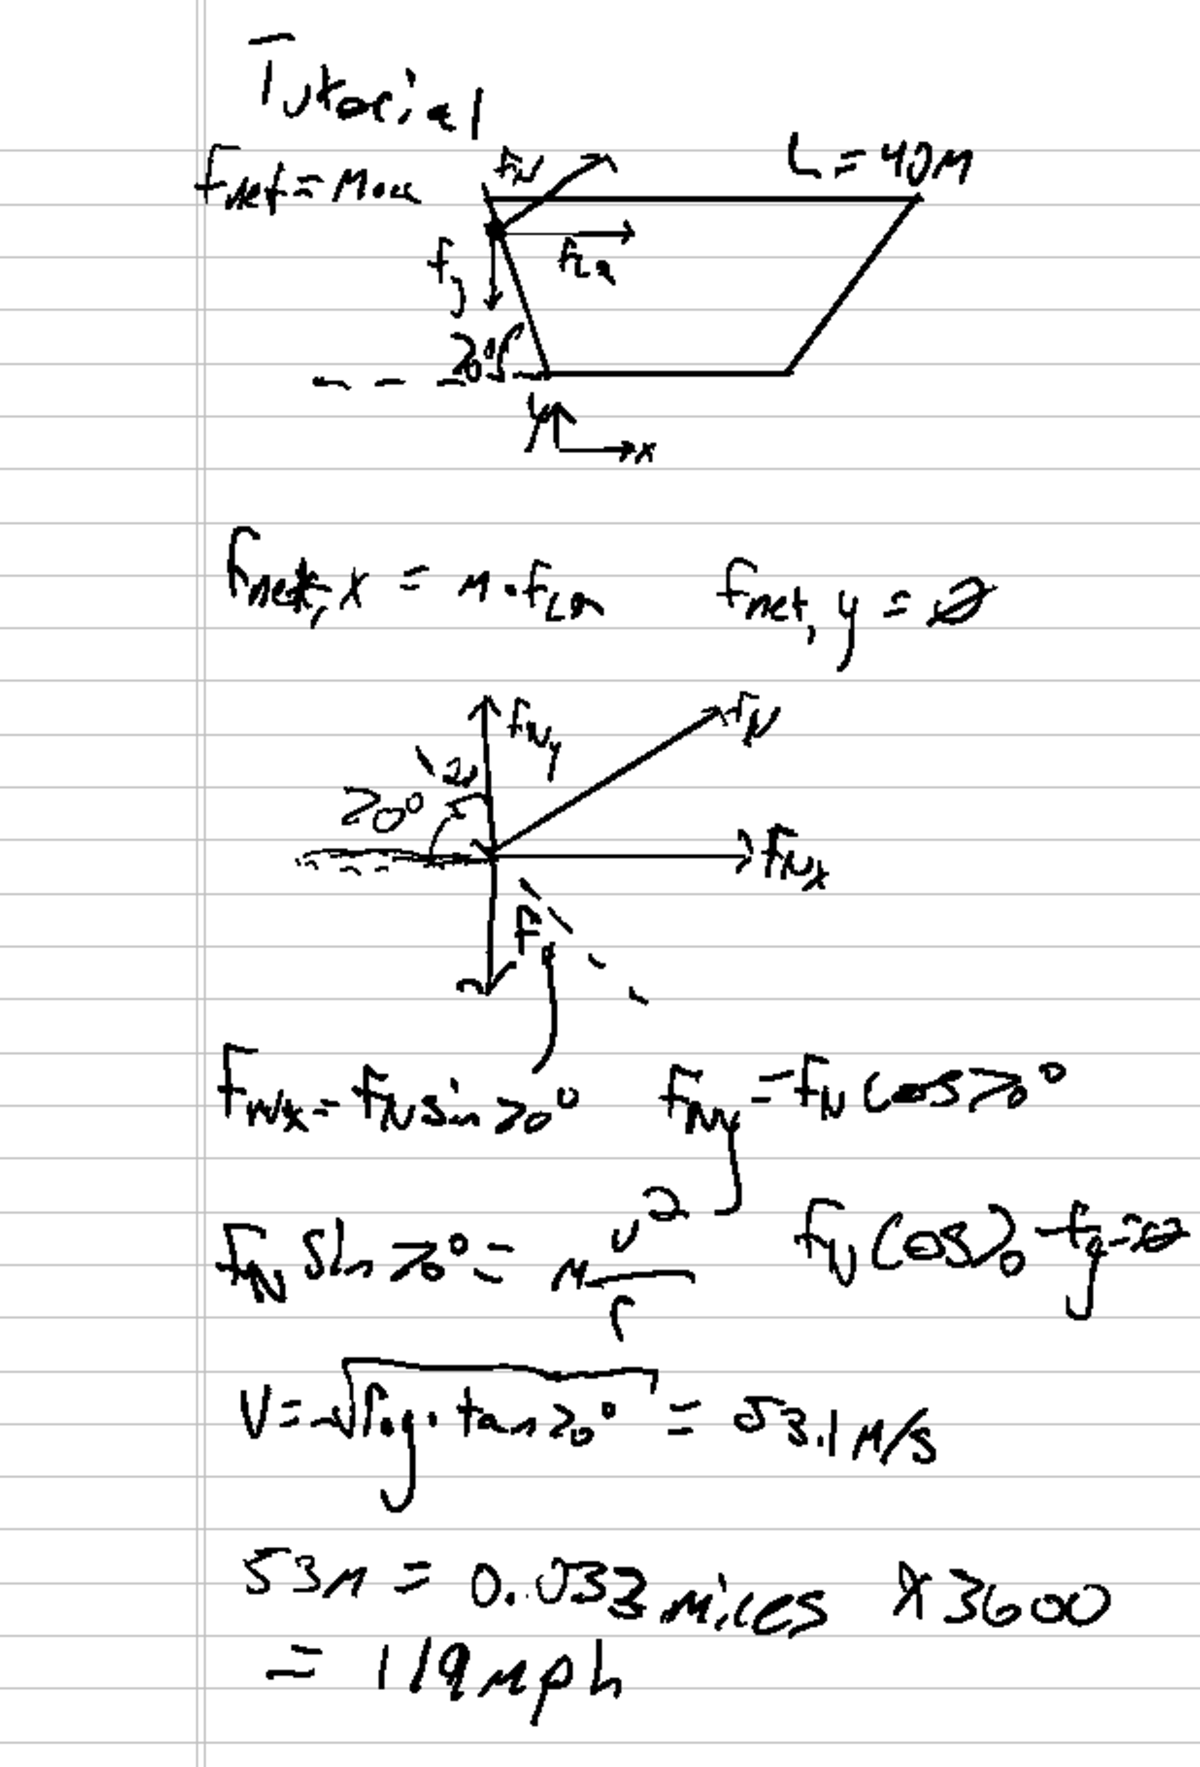 Tutorial
Fnet = M·a   FN   L = 40M
Fg   FLR
70°
y
x
Fnet, x = M·FLR   Fnet, y = 0
FNy   FN
70°   20
FNx
Fg
FNx = FN sin 70°   FNy = FN cos 70°
FN sin 70° = M v²/r   FN cos 70 - Fg = 0
V = √r·g·tan 70° = 53.1 M/s
53M = 0.033 miles x 3600
= 119 mph